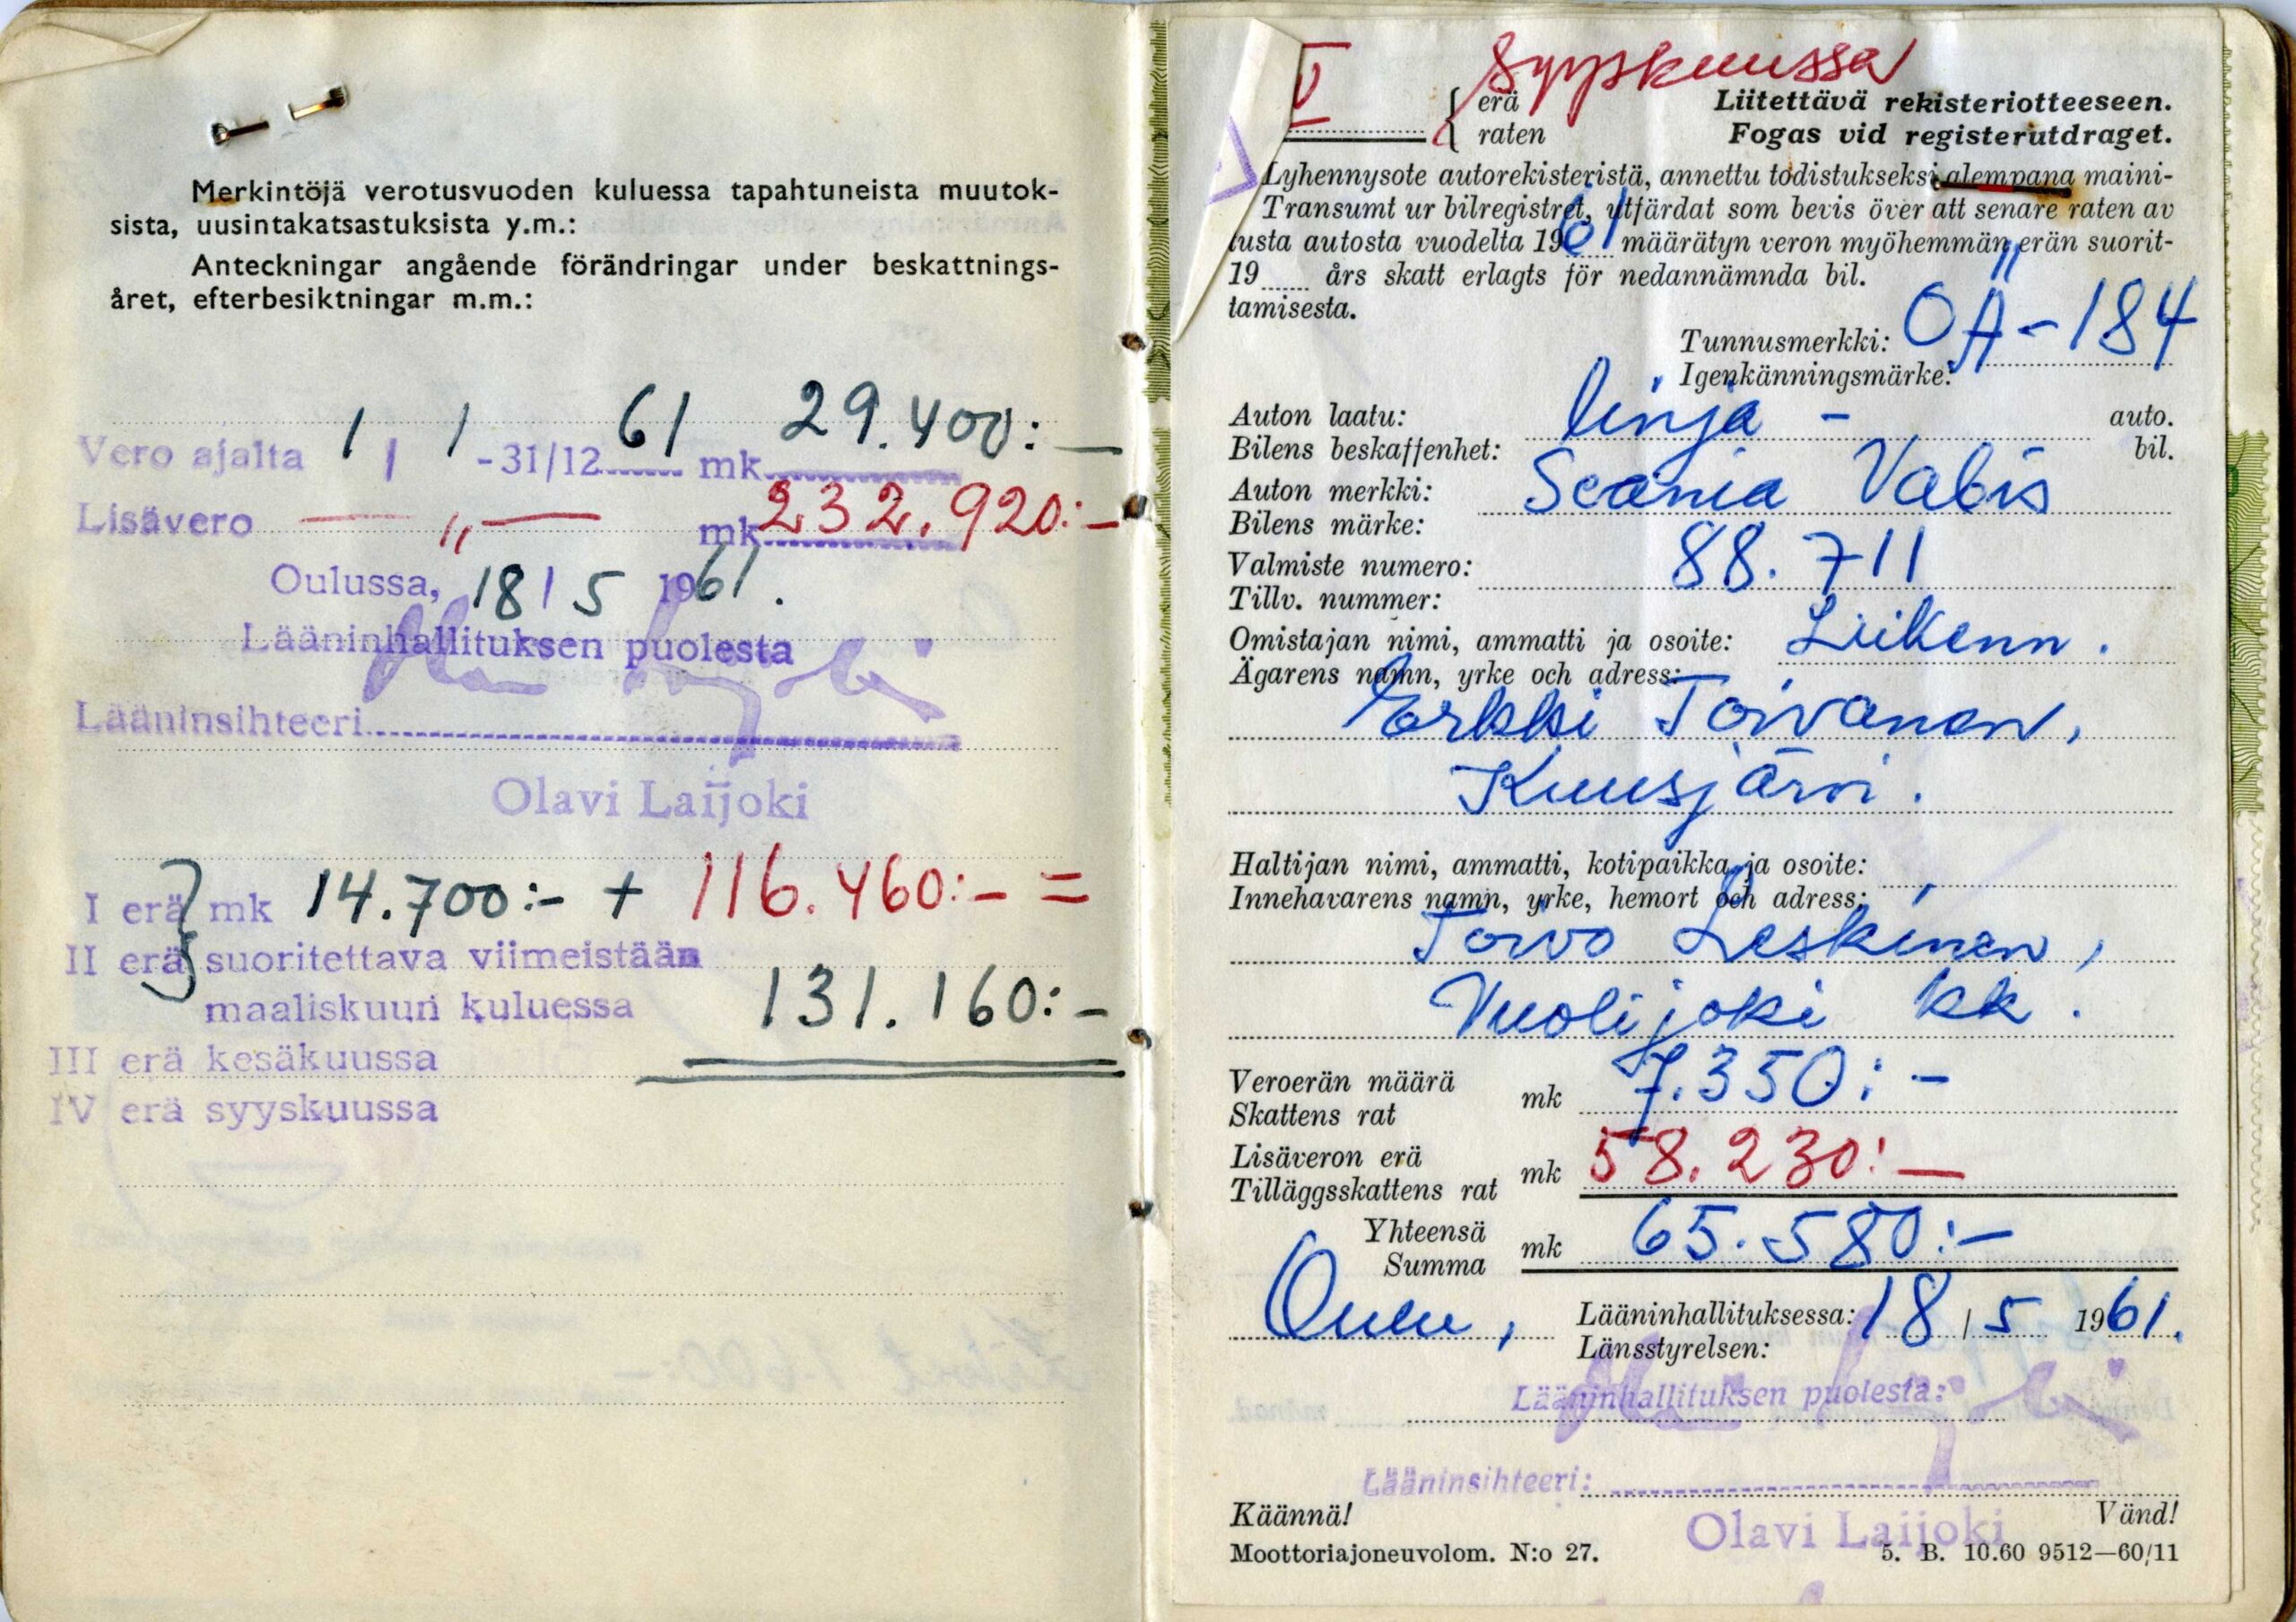 Merkintöjä verotusvuoden kuluessa tapahtuneista muutok-
sista, uusintakatsastuksista y.m.:
Anteckningar angående förändringar under beskattnings-
året, efterbesiktningar m.m.:
Vero ajalta 1 / 1 -31/12 61 mk 29.400:-
Lisävero — „ — mk 232.920:-
Oulussa, 18 / 5 1961.
Lääninhallituksen puolesta
Lääninsihteeri
Olavi Laijoki
I erä mk 14.700:- + 116.460:- =
II erä suoritettava viimeistään
maaliskuun kuluessa 131.160:-
III erä kesäkuussa
IV erä syyskuussa
V Syyskuussa
erä
raten
Liitettävä rekisteriotteeseen.
Fogas vid registerutdraget.
Lyhennysote autorekisteristä, annettu todistukseksi alempana maini-
Transumt ur bilregistret, utfärdat som bevis över att senare raten av
tusta autosta vuodelta 1961 määrätyn veron myöhemmän erän suorit-
19 års skatt erlagts för nedannämnda bil.
tamisesta.
Tunnusmerkki: OÄ-184
Igenkänningsmärke:
Auton laatu: linja - auto.
Bilens beskaffenhet: bil.
Auton merkki: Scania Vabis
Bilens märke:
Valmiste numero: 88.711
Tillv. nummer:
Omistajan nimi, ammatti ja osoite: Liikenn.
Ägarens namn, yrke och adress:
Erkki Toivanen,
Kuusjärvi.
Haltijan nimi, ammatti, kotipaikka ja osoite:
Innehavarens namn, yrke, hemort och adress:
Toivo Leskinen,
Vuolijoki kk.
Veroerän määrä mk 7.350:-
Skattens rat
Lisäveron erä mk 58.230:-
Tilläggsskattens rat
Yhteensä mk 65.580:-
Summa
Oulu, Lääninhallituksessa: 18 / 5 1961.
Länsstyrelsen:
Lääninhallituksen puolesta:
Lääninsihteeri:
Käännä! Vänd!
Olavi Laijoki
Moottoriajoneuvolom. N:o 27. 5. B. 10.60 9512—60/11